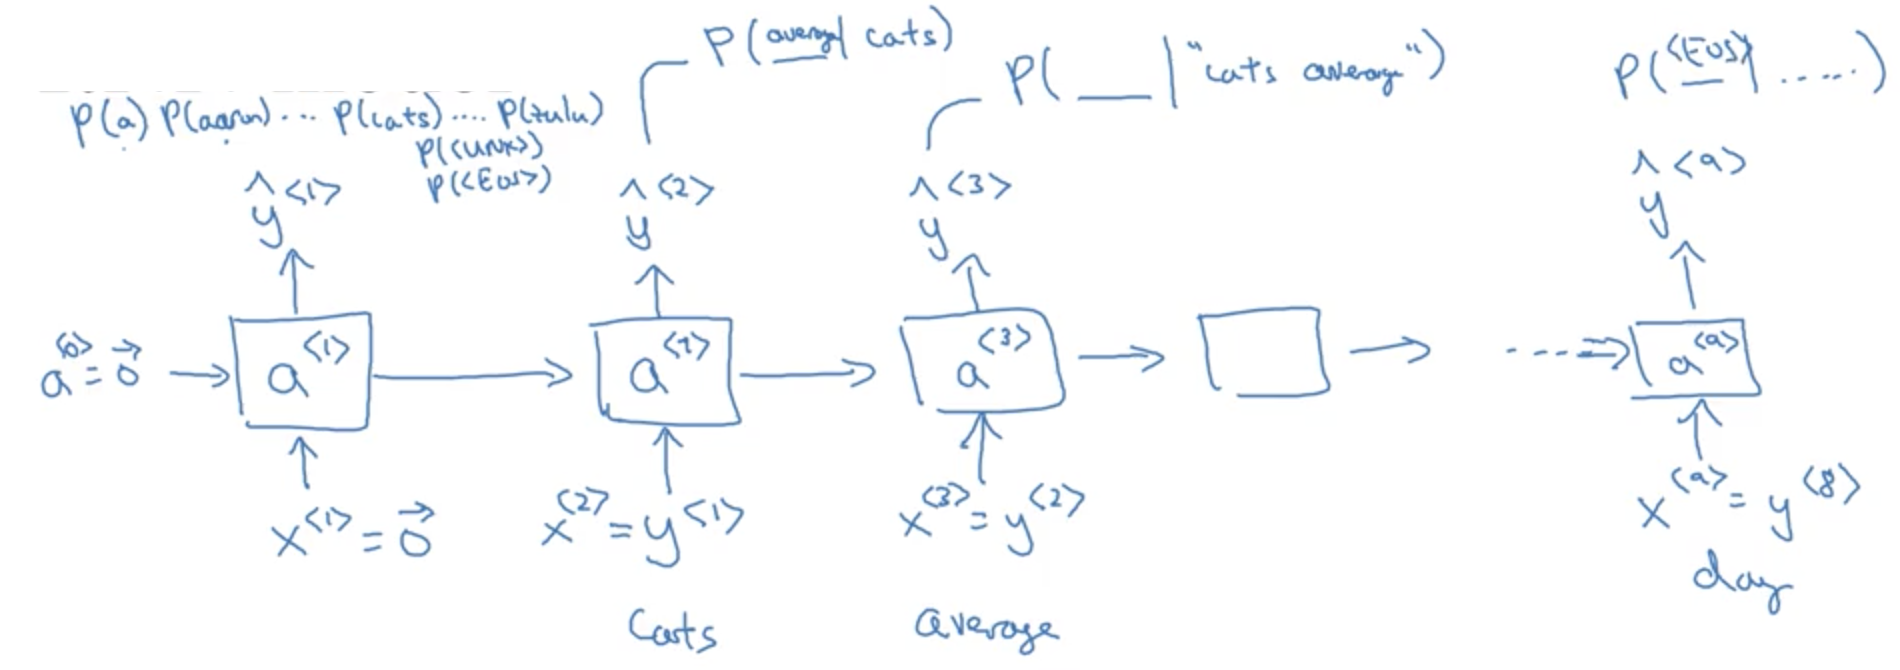 P(average | cats)
P( ___ | "cats average")
P(<EOS> | ......)
P(a) P(aaron) ... P(cats) .... P(zulu)
P(<UNK>)
P(<EOS>)
ŷ<1>
ŷ<2>
ŷ<3>
ŷ<9>
a<0> = 0⃗
a<1>
a<2>
a<3>
a<9>
x<1> = 0⃗
x<2> = y<1>
x<3> = y<2>
x<9> = y<8>
Cats
average
day